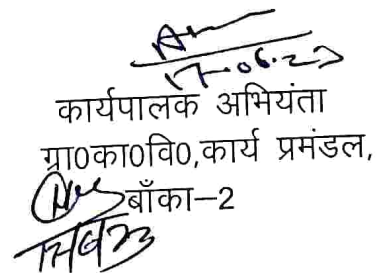 17-06-23
कार्यपालक अभियंता
ग्रा0का0वि0,कार्य प्रमंडल,
बाँका–2